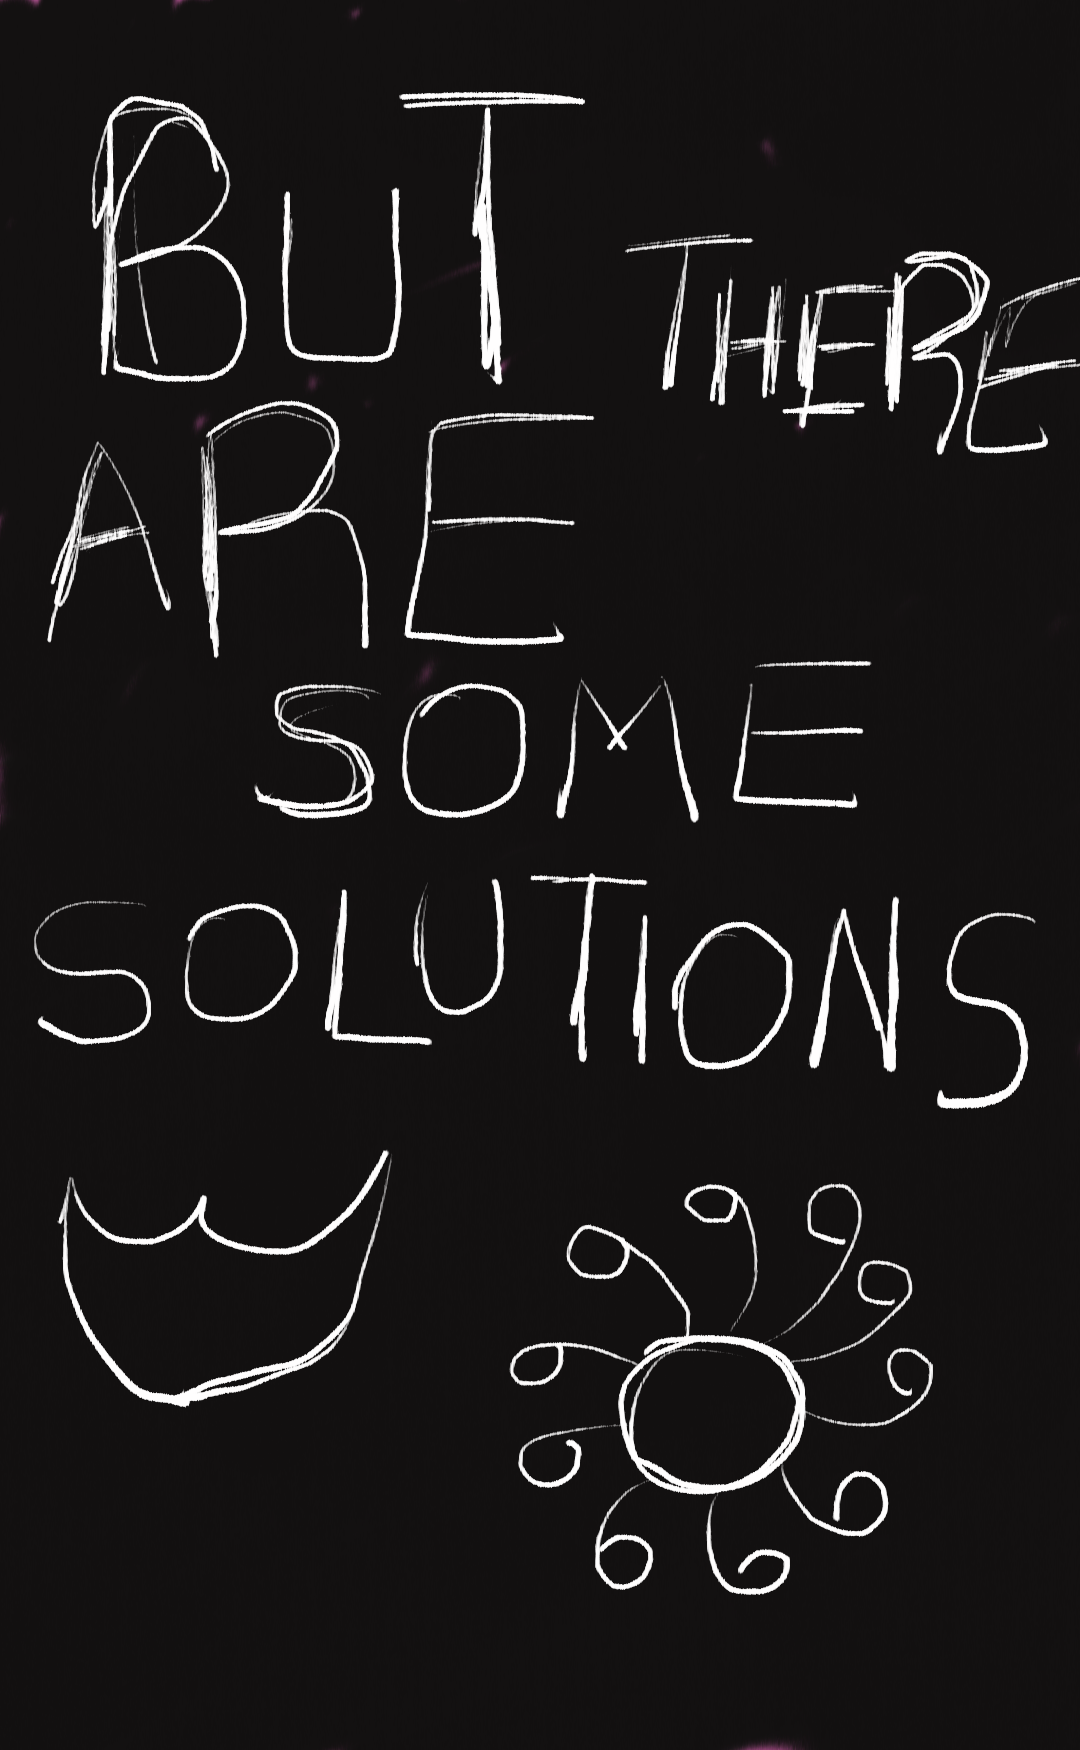 BUT THERE
ARE
SOME
SOLUTIONS